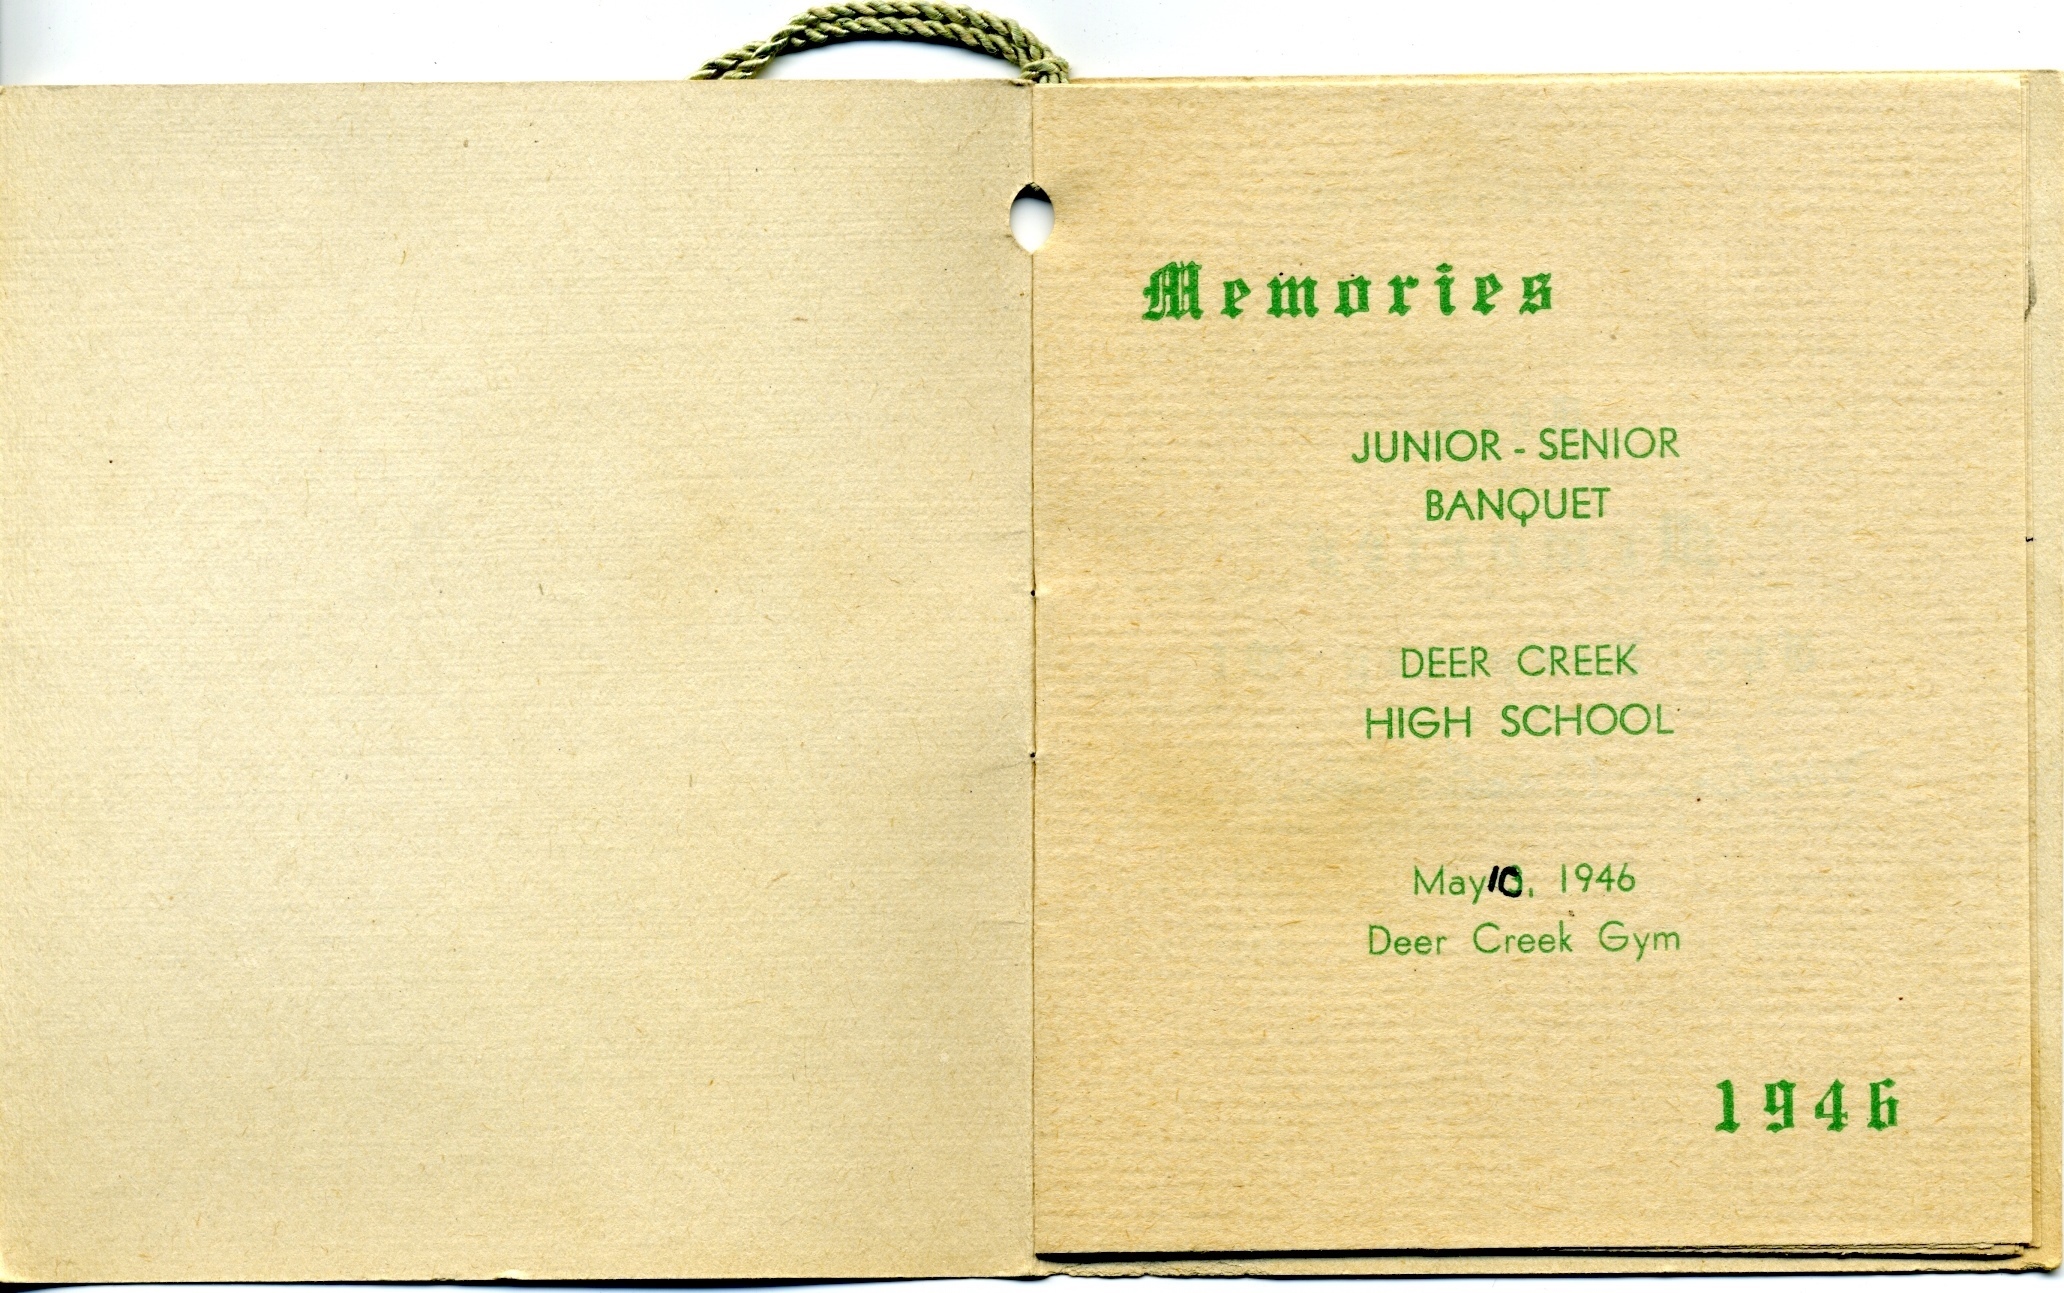 Memories
JUNIOR - SENIOR
BANQUET
DEER CREEK
HIGH SCHOOL
May 10, 1946
Deer Creek Gym
1946